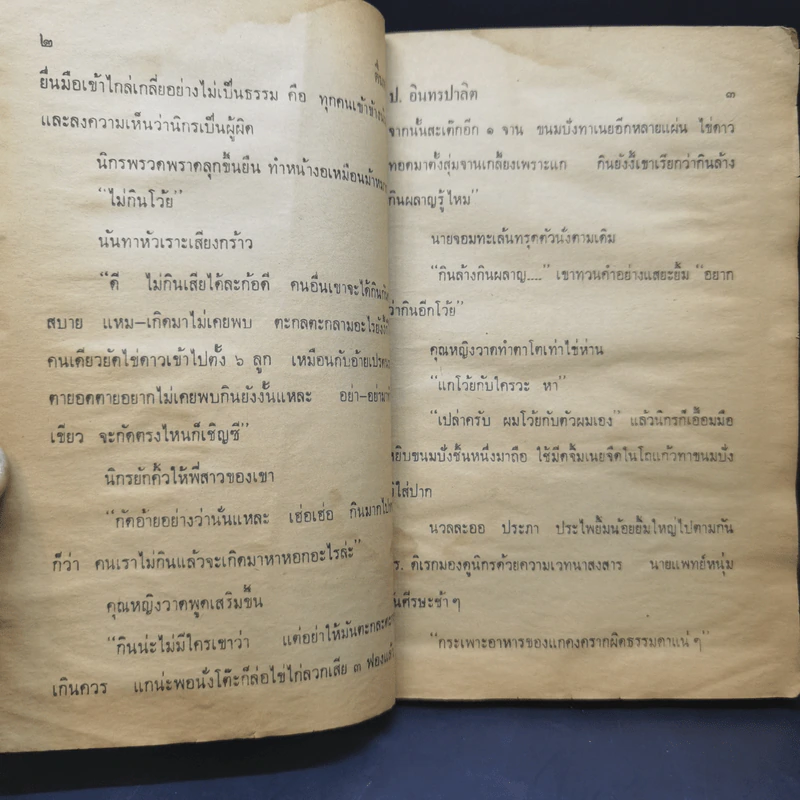 ๒
ยื่นมือเข้าไกล่เกลี่ยอย่างไม่เป็นธรรม คือ ทุกคนเข้าข้าง
และลงความเห็นว่านิกรเป็นผู้ผิด
นิกรพรวดพราดลุกขึ้นยืน ทำหน้างอเหมือนม้า
“ไม่กินโว้ย”
นันทาหัวเราะเสียงกร้าว
“ดี ไม่กินเสียได้ละก้อดี คนอื่นเขาจะได้กินกัน
สบาย แหม—เกิดมาไม่เคยพบ ตะกลตะกลามอะไรยังงี้
คนเดียวยัดไข่ดาวเข้าไปตั้ง ๖ ลูก เหมือนกับอ้ายเปรต
ตายอดตายอยากไม่เคยพบกินยังงั้นแหละ อย่า—อย่ามา
เขียว จะกัดตรงไหนก็เชิญซี”
นิกรยักคิ้วให้พี่สาวของเขา
“กัดอ้ายอย่างว่านั่นแหละ เฮ่อเฮ่อ กินมากไป
ก็ว่า คนเราไม่กินแล้วจะเกิดมาหาหอกอะไรล่ะ”
คุณหญิงวาดพูดเสริมขึ้น
“กินน่ะไม่มีใครเขาว่า แต่อย่าให้มันตะกละตะ
เกินควร แกน่ะพอนั่งโต๊ะก็ล่อไข่ไก่ลวกเสีย ๓ ฟองแล้ว
ป. อินทรปาลิต
๓
จากนั้นสะเต๊กอีก ๑ จาน ขนมปังทาเนยอีกหลายแผ่น ไข่ดาว
ทอดมาตั้งสุ่มจานเกลี้ยงเพราะแก กินยังงี้เขาเรียกว่ากินล้าง
กินผลาญรู้ไหม”
นายจอมทะเล้นทรุดตัวนั่งตามเดิม
“กินล้างกินผลาญ....” เขาทวนคำอย่างแสยะยิ้ม “อยาก
ว่ากินอีกโว้ย”
คุณหญิงวาดทำตาโตเท่าไข่ห่าน
“แกโว้ยกับใครวะ หา”
“เปล่าครับ ผมโว้ยกับตัวผมเอง” แล้วนิกรก็เอื้อมมือ
หยิบขนมปังชิ้นหนึ่งมาถือ ใช้มีดจิ้มเนยจืดในโถแก้วทาขนมปัง
ใส่ปาก
นวลละออ ประภา ประไพยิ้มน้อยยิ้มใหญ่ไปตามกัน
ดร. ดิเรกมองดูนิกรด้วยความเวทนาสงสาร นายแพทย์หนุ่ม
สั่นศีรษะช้า ๆ
“กระเพาะอาหารของแกคงครากผิดธรรมดาแน่ ๆ”